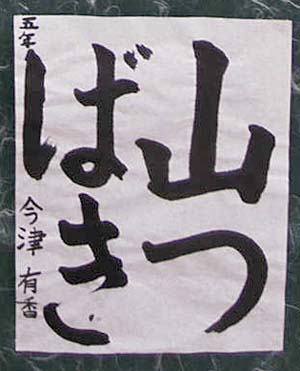 山つ
ばき
五年 今津有香